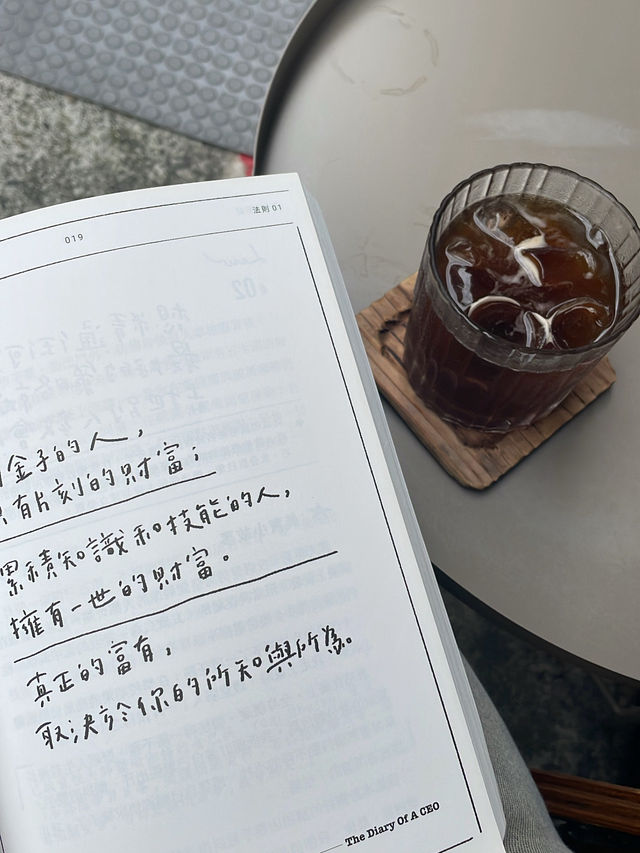 019
法則 01
金子的人，
只有片刻的財富；
累積知識和技能的人，
擁有一世的財富。
真正的富有，
取決於你的所知與所為。
The Diary Of A CEO